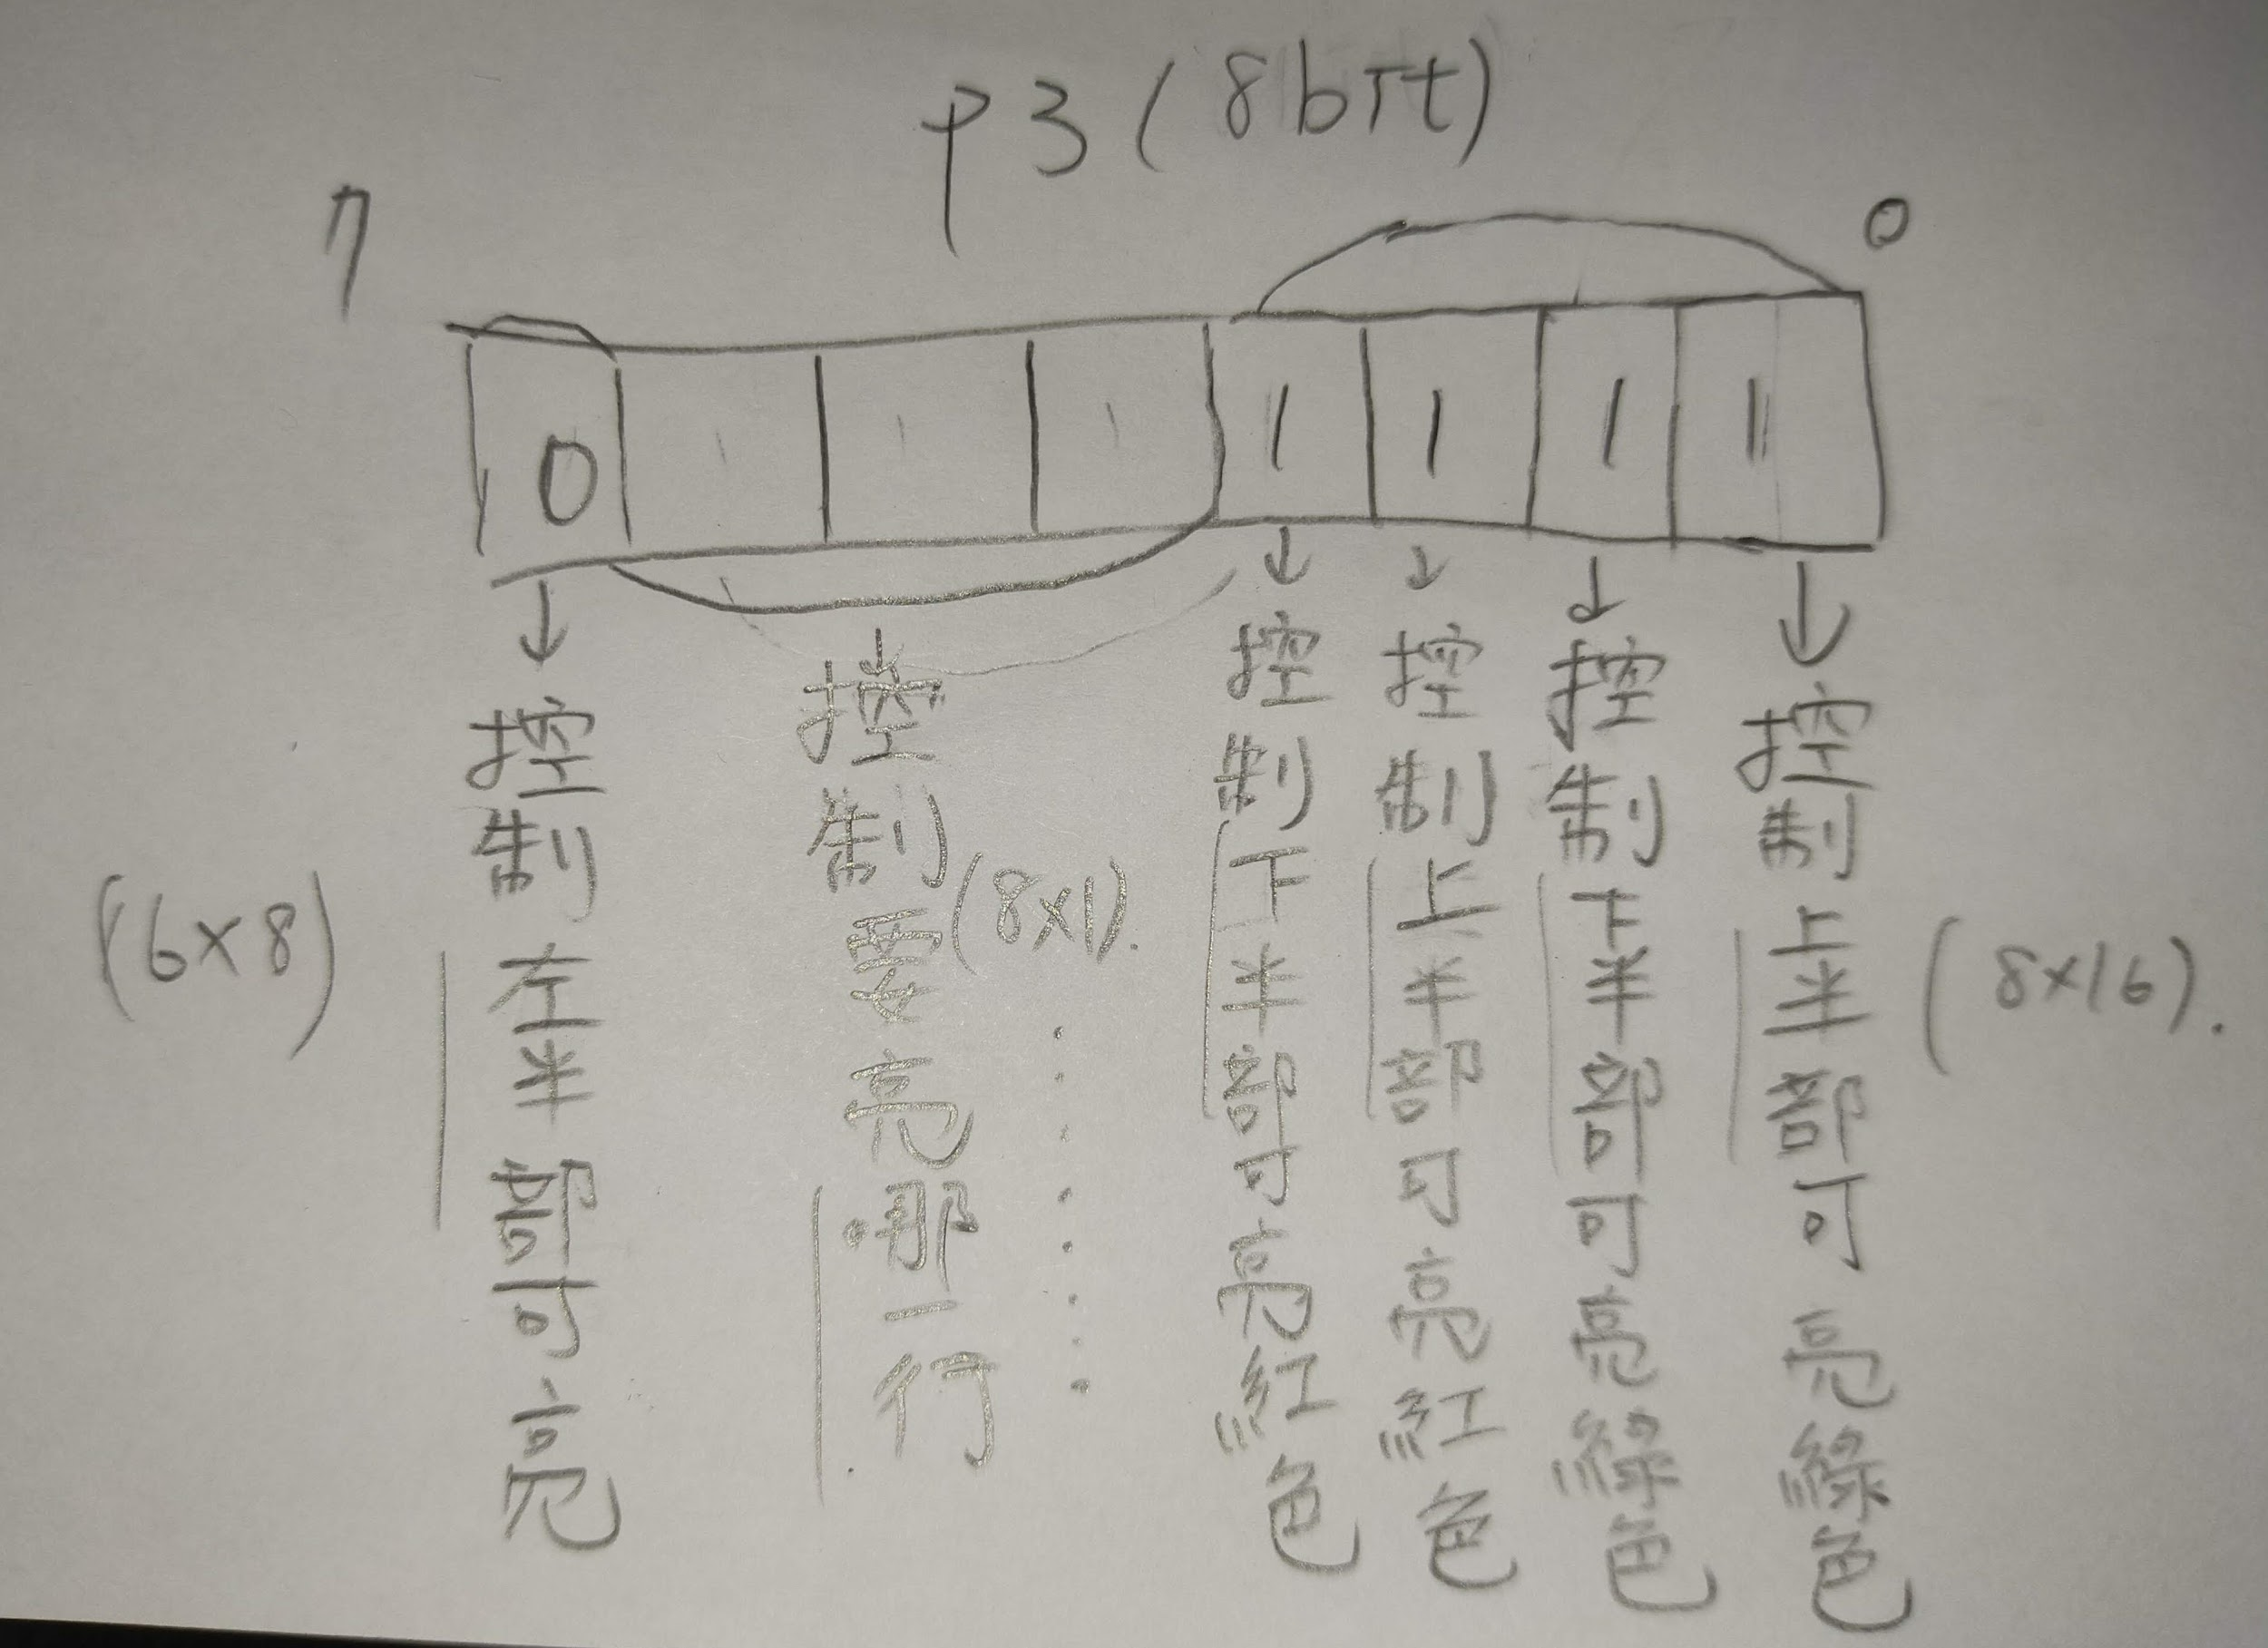 P3 (8bit)
7
0
0
1
1
1
1
1
1
1
控制左半部可亮
(16x8)
控制要亮哪一行
(8x1).
控制下半部可亮紅色
控制上半部可亮紅色
控制下半部可亮綠色
控制上半部可亮綠色
(8x16).